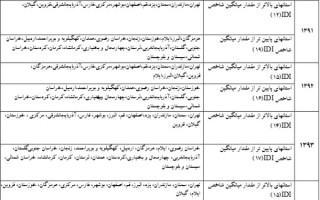 استانهای بالاتر از مقدار میانگین شاخص IDI(۱۲)
تهران،مازندران،سمنان،یزد،قم،اصفهان،بوشهر،مرکزی،فارس،آذربایجانشرقی،گیلان،
۱۳۹۱
استانهای پایین تر از مقدار میانگین شاخص IDI(۱۹)
هرمزگان،البرز،ایلام،خوزستان،زنجان،خراسان رضوی،همدان،کهگیلویه و بویراحمد،اردبیل،خراسان
جنوبی،گلستان،آذربایجانغربی،لرستان،چهارمحال و بختیاری،کرمانشاه،کرمان،کردستان،خراسان
شمالی،سیستان و بلوچستان
استانهای بالاتر از مقدار میانگین شاخص IDI(۱۵)
تهران،مازندران،سمنان،یزد،قم،اصفهان،بوشهر،مرکزی،فارس،هرمزگان،
قزوین،گیلان،البرز،ایلام
۱۳۹۲
استانهای پایین تر از مقدار میانگین شاخص IDI(۱۶)
خوزستان،زنجان،خراسان رضوی،همدان،کهگیلویه و بویراحمد،اردبیل،خراسان
جنوبی،گلستان،آذربایجانغربی،لرستان،چهارمحال و بختیاری،کرمانشاه،کرمان،کردستان،خراسان
شمالی،سیستان و بلوچستان
استانهای بالاتر از مقدار میانگین شاخص IDI(۱۴)
تهران، سمنان، مازندران، یزد، اصفهان، قم، البرز، بوشهر، فارس، آذربایجان شرقی، مرکزی، خوزستان،
گیلان، قزوین
۱۳۹۳
استانهای پایین تر از مقدار میانگین شاخص IDI(۱۷)
خراسان رضوی، ایلام، هرمزگان، اردبیل، زنجان، خراسان جنوبی، کهگیلویه و بویراحمد، گلستان،
آذربایجانغربی، چهارمحال و بختیاری، همدان، لرستان، کرمان، کردستان، کرمانشاه، خراسان شمالی،
سیستان و بلوچستان
استانهای بالاتر از مقدار میانگین شاخص IDI(۱۵)
تهران، سمنان، مازندران، یزد، البرز، قم، اصفهان، بوشهر، فارس، مرکزی، هرمزگان، خوزستان، قزوین،
گیلان، ایلام